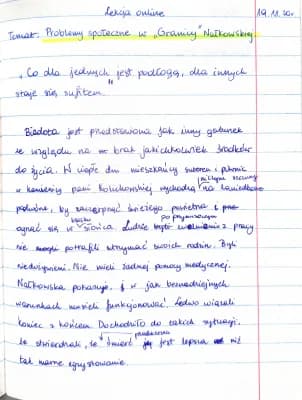 Lekcja online 19.11.20r.
Temat: Problemy społeczne w „Granicy" Nałkowskiej.
„Co dla jednych jest podłogą, dla innych
staje się sufitem."
Biedota jest przedstawiona jak inny gatunek
ze względu na brak jakichkolwiek środków
do życia. W ciepłe dni mieszkańcy suteren i piwnic
w kamienicy pani Kolichowskiej wychodzą na
podwórze, by zaczerpnąć świeżego powietrza
ograć się w słońcu. Ludzie z pracy
nie potrafili utrzymać swoich rodzin. Byli
niedożywieni. Nie mieli żadnej pomocy medycznej.
Nałkowska pokazuje, w jak beznadziejnych
warunkach musieli funkcjonować. Ledwo wiązali
koniec z końcem. Dochodziło do takich sytuacji,
że stwierdzali, że śmierć jest lepsza niż
tak marne egzystowanie.